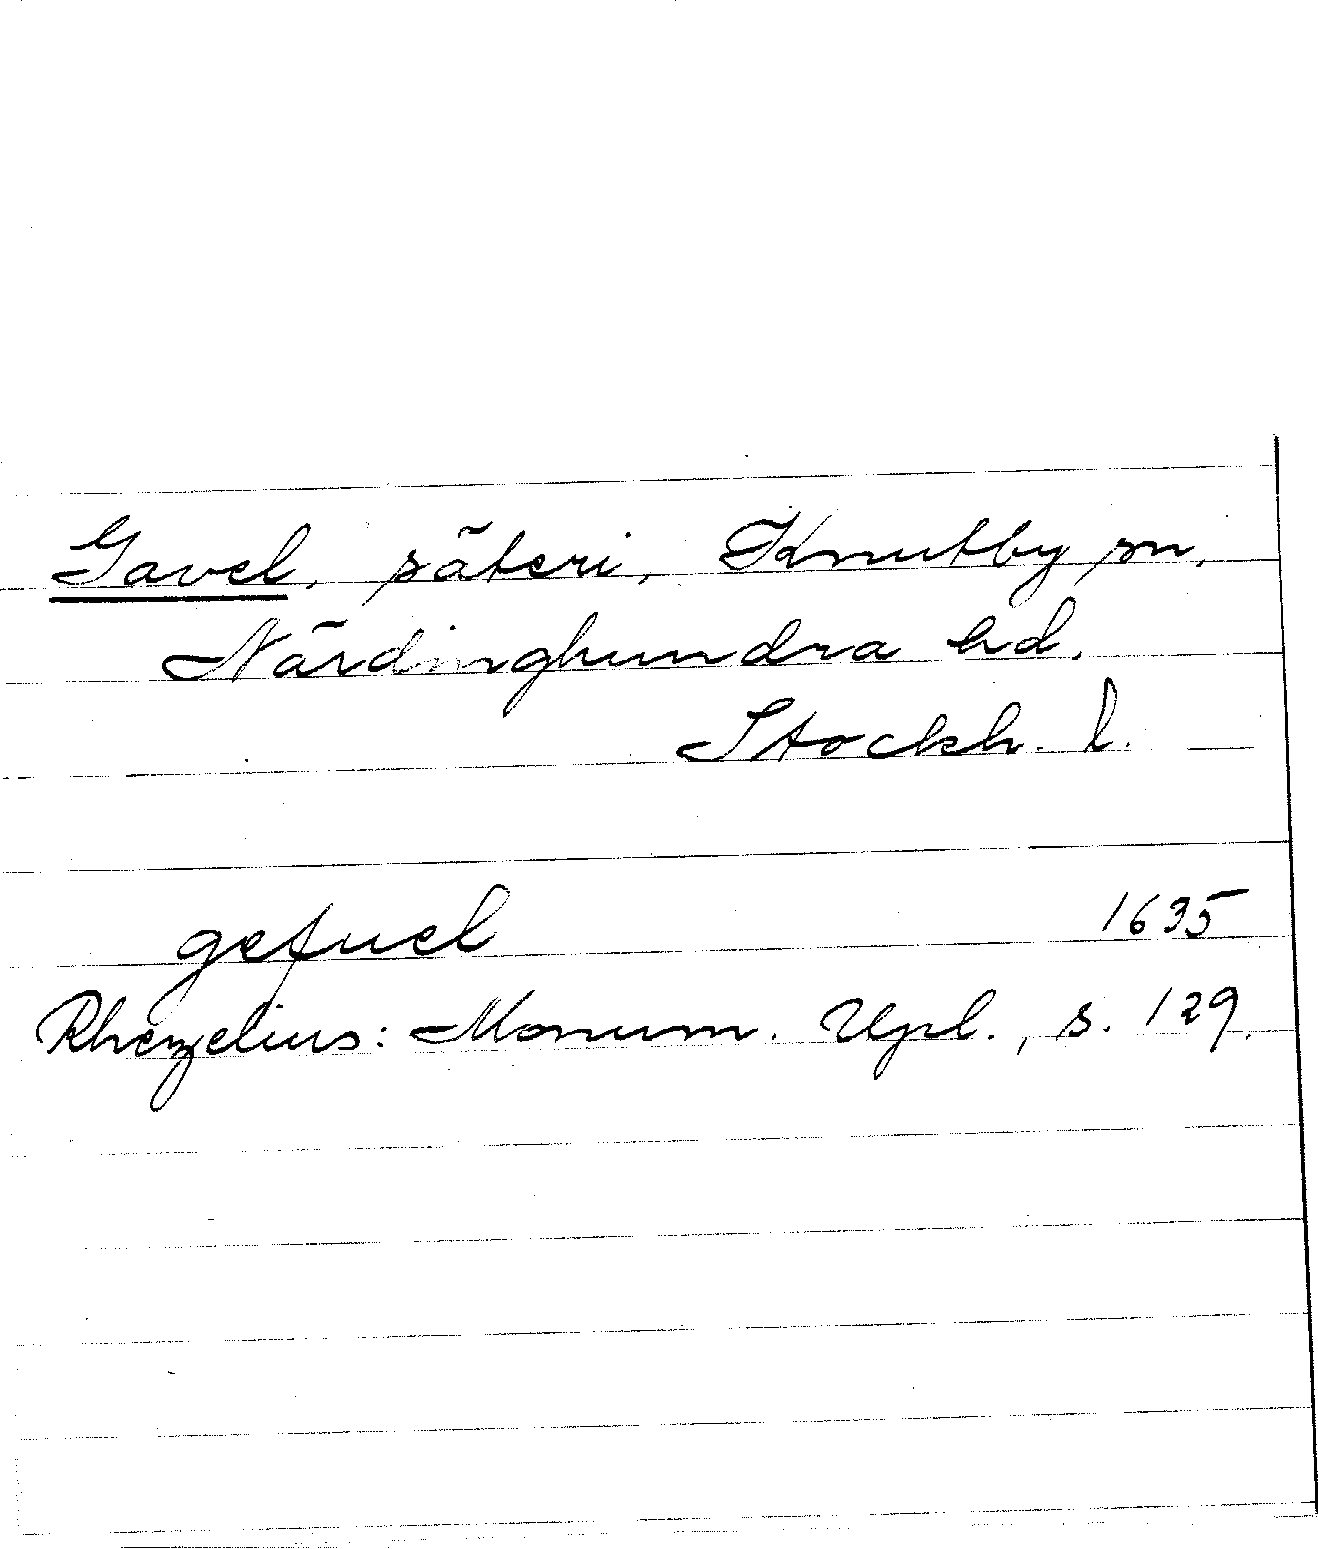 Gavel, säteri, Knutby sn,
Närdinghundra hd.
Stockh. l.
gefuel 1635
Rhezelius: Monum. Upl., s. 129.